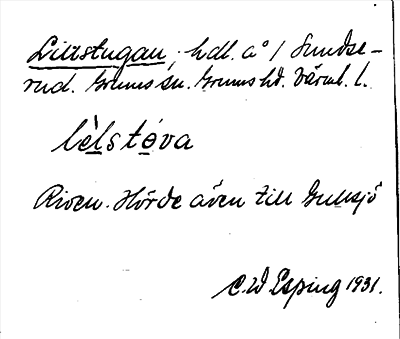 Lillstugan, hdl. a° 1 Sundse-
rud. Grums sn. Grums hd. Värml. l.
lèlstøva
Riven. Hörde även till Gullsjö
C.W Esping 1931.